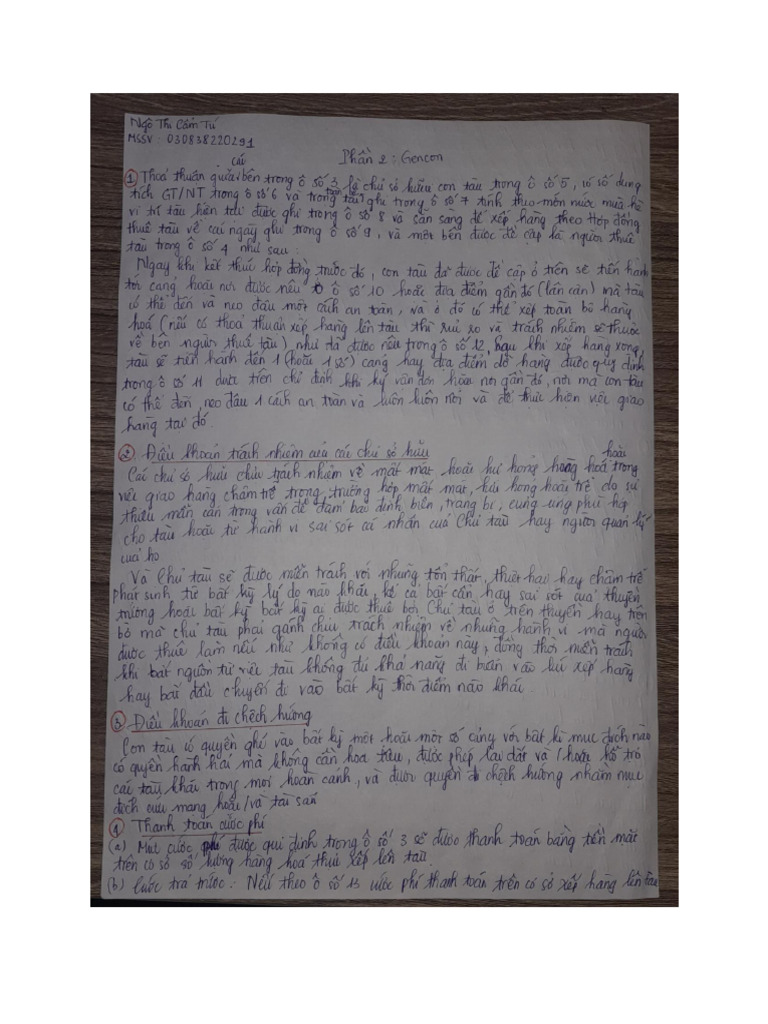 Ngô Thị Cẩm Tú
MSSV: 030838220291
Phần 2: Gencon
① Thoả thuận giữa các bên trong ô số 3 là chủ sở hữu con tàu trong ô số 5, có số dung
tích GT/NT trong ô số 6 và trọng tải ghi trong ô số 7 tính theo mớn nước mùa hè
vị trí tàu hiện tại được ghi trong ô số 8 và sẵn sàng để xếp hàng theo Hợp đồng
thuê tàu về cái ngày ghi trong ô số 9, và một bên được đề cập là người thuê
tàu trong ô số 4 như sau:
Ngay khi kết thúc hợp đồng trước đó, con tàu đã được đề cập ở trên sẽ tiến hành
tới cảng hoặc nơi được nêu ở ô số 10 hoặc địa điểm gần đó (lân cận) mà tàu
có thể đến và neo đậu một cách an toàn, và ở đó có thể xếp toàn bộ hàng
hoá (nếu có thoả thuận xếp hàng lên tàu thì rủi ro và trách nhiệm sẽ thuộc
về bên người thuê tàu) như đã được nêu trong ô số 12, sau khi xếp hàng xong
tàu sẽ tiến hành đến 1 (hoặc 1 số) cảng hay địa điểm dỡ hàng được quy định
trong ô số 11 dựa trên chỉ định khi ký vận đơn hoặc nơi gần đó, nơi mà con tàu
có thể đến, neo đậu 1 cách an toàn và luôn luôn nổi và để thực hiện việc giao
hàng tại đó.
②. Điều khoản trách nhiệm của các chủ sở hữu
Các chủ sở hữu chịu trách nhiệm về mất mát hoặc hư hỏng hàng hoá hoặc trong
việc giao hàng chậm trễ trong trường hợp mất mát, hư hỏng hoặc trễ do sự
thiếu mẫn cán trong vấn đề đảm bảo định biên, trang bị, cung ứng phù hợp
cho tàu hoặc từ hành vi sai sót cá nhân của Chủ tàu hay người quản lý
của họ
Và Chủ tàu sẽ được miễn trách với những tổn thất, thiệt hại hay chậm trễ
phát sinh từ bất kỳ lý do nào khác, kể cả bất cẩn hay sai sót của thuyền
trưởng hoặc bất kỳ bất kỳ ai được thuê bởi Chủ tàu ở trên thuyền hay trên
bờ mà chủ tàu phải gánh chịu trách nhiệm về những hành vi mà người
được thuê làm nếu như không có điều khoản này, đồng thời miễn trách
khi bắt nguồn từ việc tàu không đủ khả năng đi biển vào lúc xếp hàng
hay bắt đầu chuyến đi vào bất kỳ thời điểm nào khác.
③ Điều khoản đi chệch hướng
Con tàu có quyền ghé vào bất kỳ một hoặc một số cảng với bất kì mục đích nào
có quyền hành hải mà không cần hoa tiêu, được phép lai dắt và / hoặc hỗ trợ
các tàu khác trong mọi hoàn cảnh, và được quyền đi chệch hướng nhằm mục
đích cứu mạng hoặc/và tài sản
④ Thanh toán cước phí
(a) Mức cước phí được qui định trong ô số 3 sẽ được thanh toán bằng tiền mặt
trên cơ sở số lượng hàng hoá thực xếp lên tàu.
(b) Cước trả trước: Nếu theo ô số 13 cước phí thanh toán trên cơ sở xếp hàng lên tàu